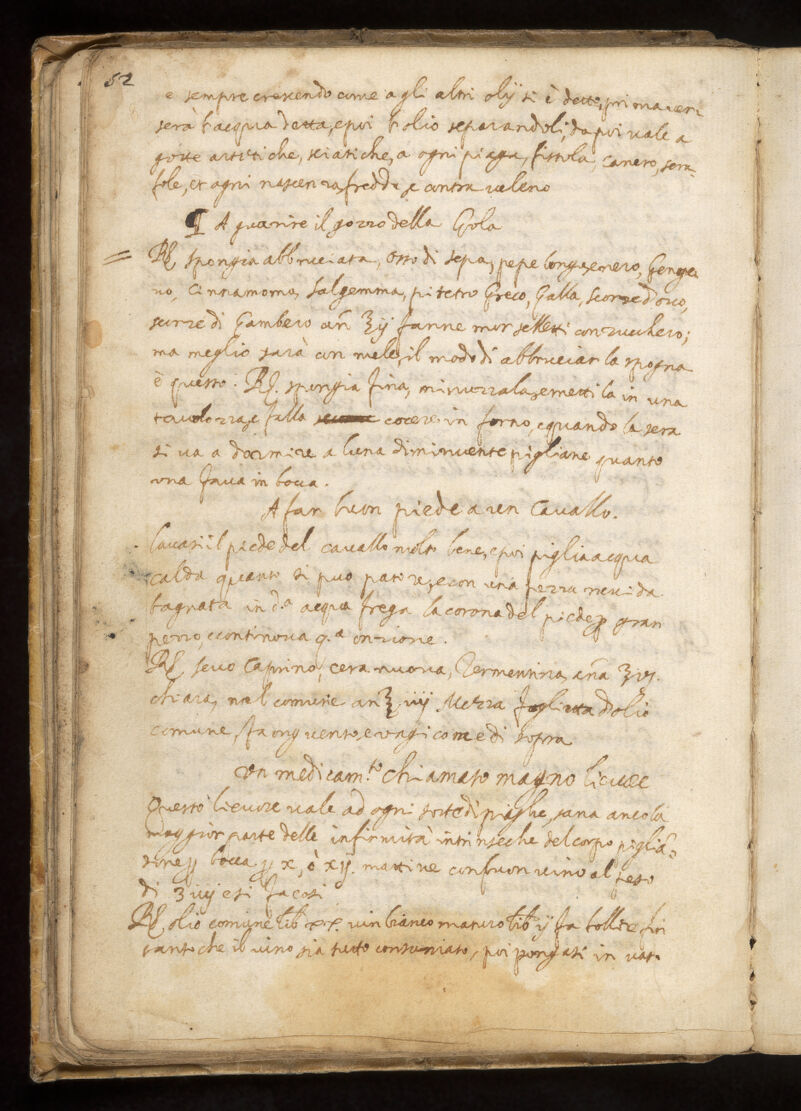 52
e sempre crescendo come agli altri olij si è detto, prima veri
sera l'acqua detta, e poi l'olio separandoli, da poi vale a
gotte artetiche, sciatiche, a ogni piaga, fistola, cancro, scro
fole, et ogni nascenza fredda, e contra veleno
¶ A guarire il gozzo della Gola
℞ spongia abbruciata, osso di sepa, pepe longo, e nero, Gengea
vo, Cinnamomo, Salgemma, pitetro Greco, Galla, scorze d'ovo,
scorze di Gambero añ ʒij fanne morselletti con zucchero;
ma meglio sarà con mele, il modo di abbruciar la spogna
è questo. ℞. spongia fina, minuzzala, e mettila in una
tavolozza, e falla cocere in forno, e quando la sera
si va a dormire a luna diminuente pigliane quanto
una fava in bocca.
A far buon piede a un Cavallo.
Lavasi il piede del cavallo molto bene, e poi piglia acqua
calda quanto si puo patore, e con una pezza ruvida
bagnata in d.ª acqua frega la corona del piede ꝑ gran
pezzo, e continova q.ª onzione.
℞ sevo Caprino, cera nuova, Termentina, anã ʒvj.
chiara, mel comune an ʒ iiij Mezza foglietta d'olio
comune, fa onguento, e ungi come di sopra
Un medicam.to chiamato magno licuore
Questo licuore vale ad ogni sorte di piaghe, sana ancola
maggior parte delle infirmità intrinseche del corpo piglia
done ꝑ bocca ꝑ x, ò xij. mattine con buon vino al peso
di ʒ iiij e si fa cosi
℞ olio comune lib xx. vin bianco maturo lib ij fa bollire fin
tanto che il vino sia tutto consumato, poi pongasi in vaso